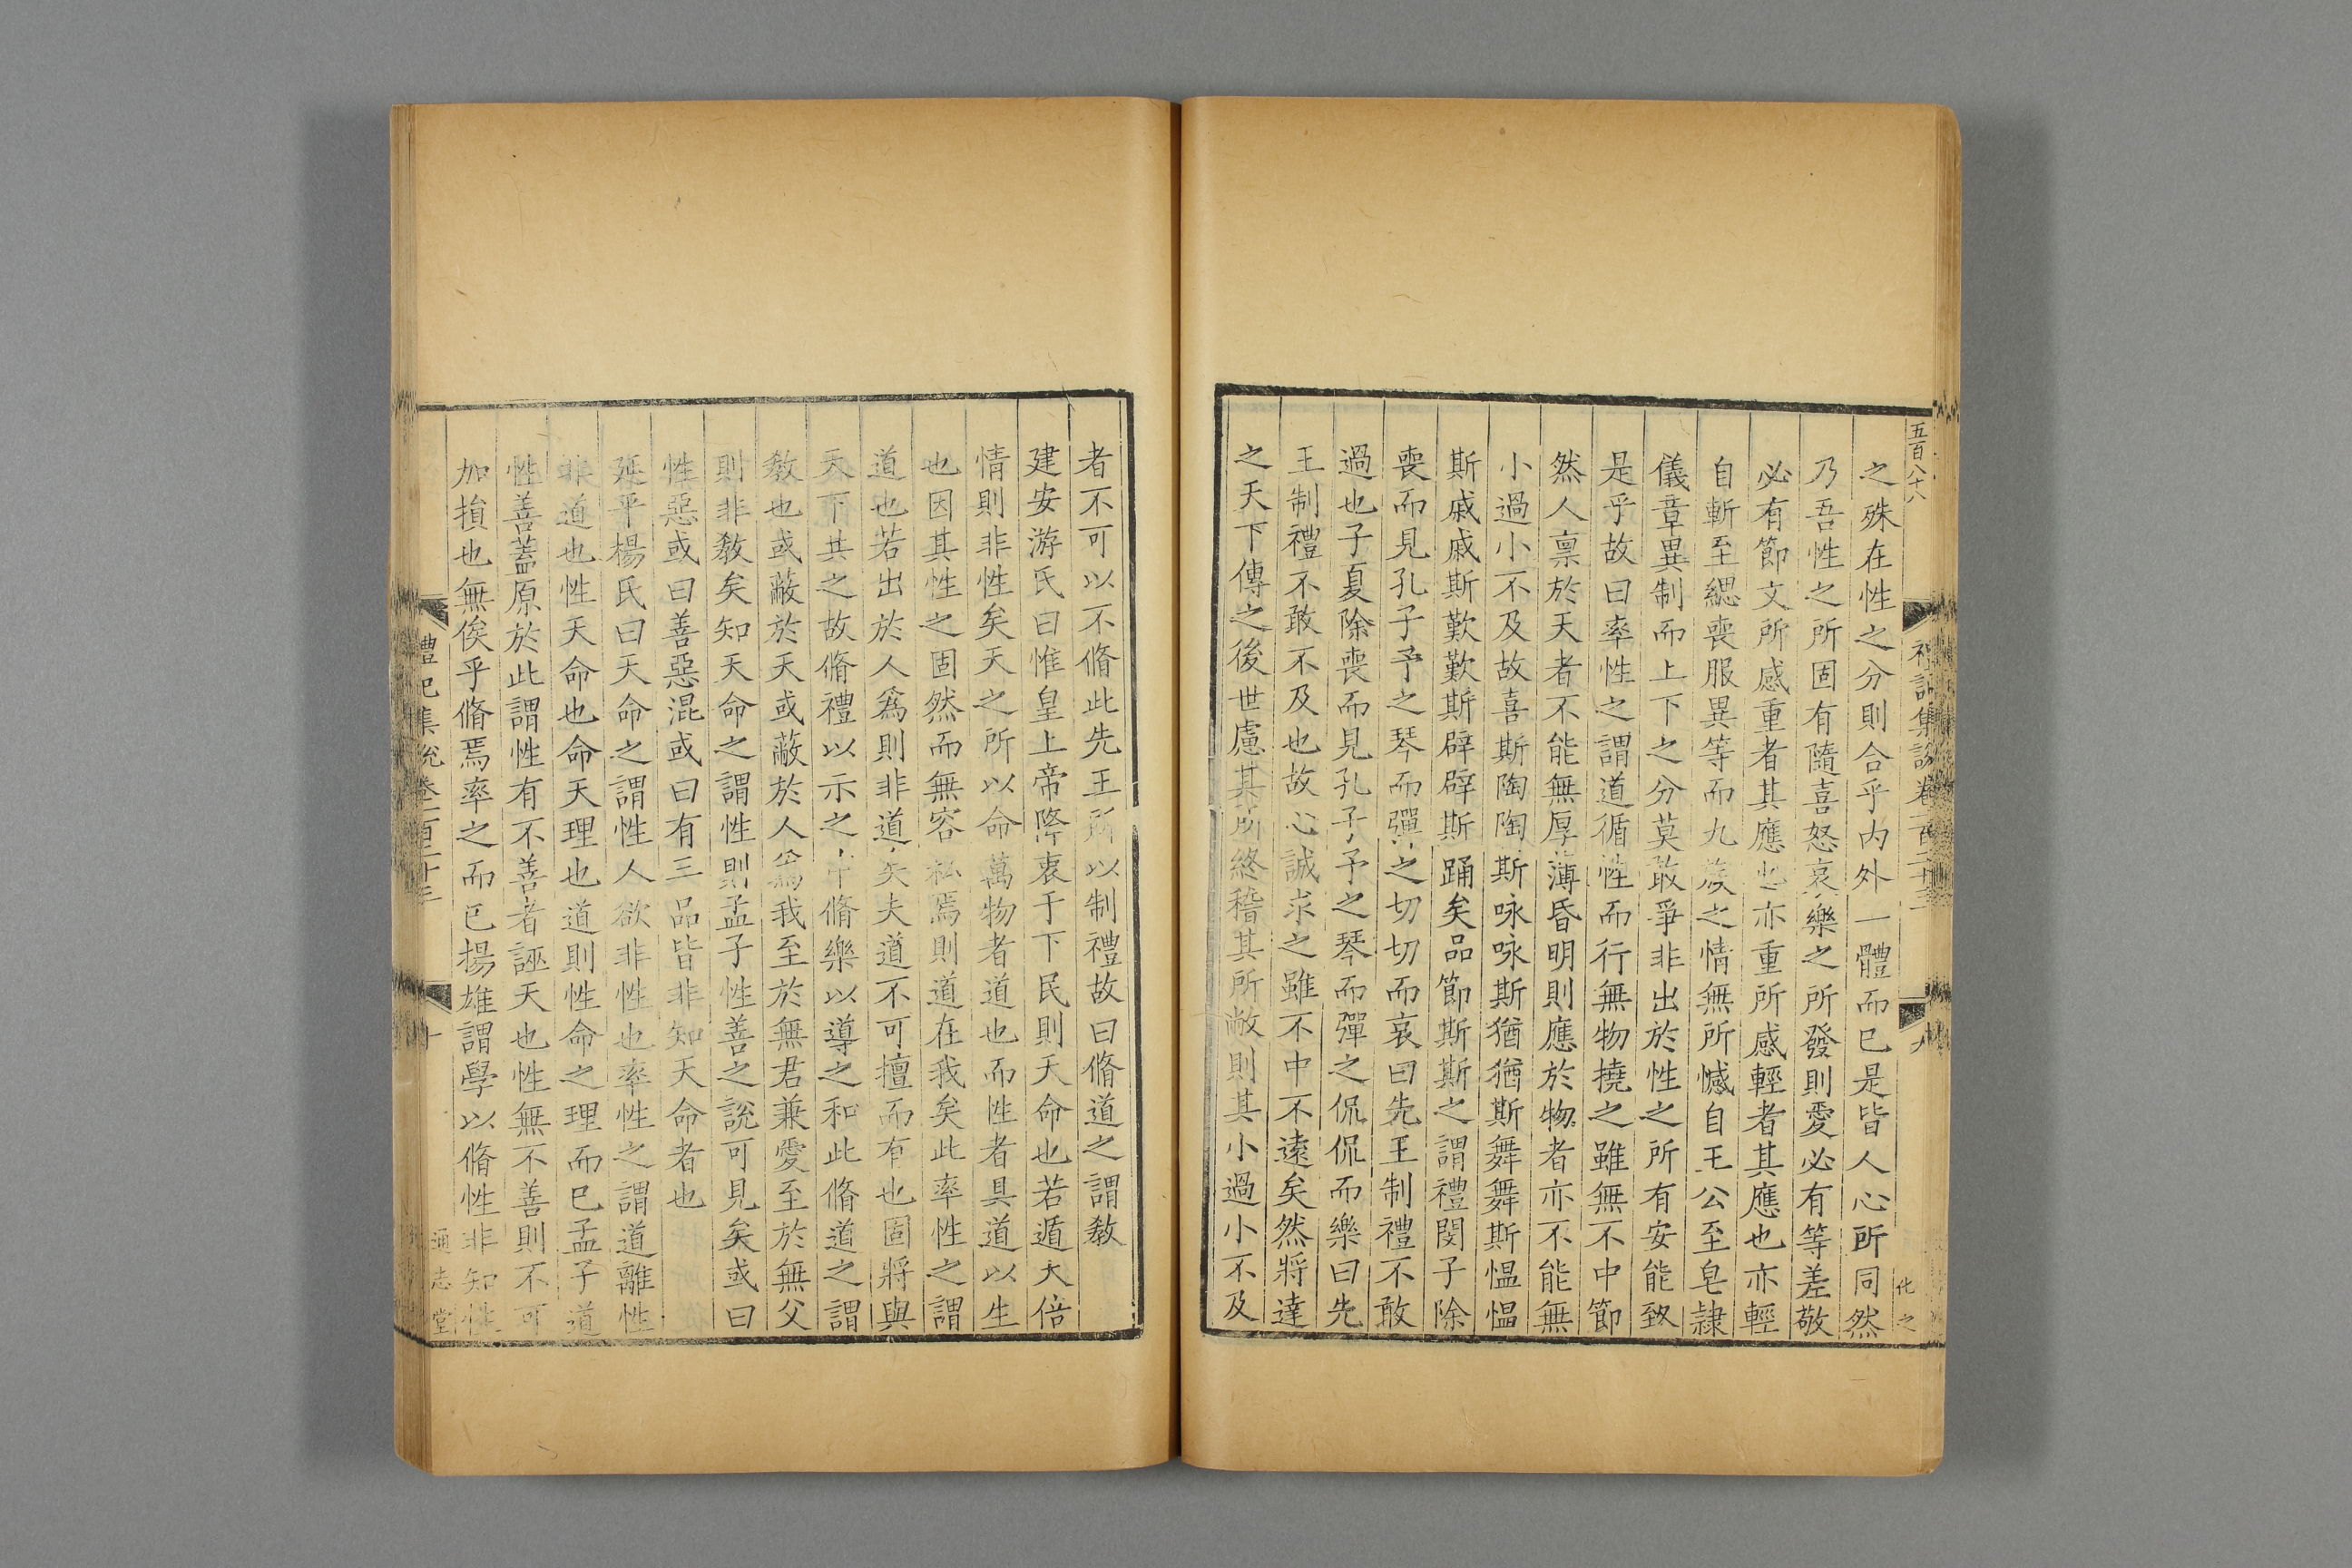 五百八十八
之殊在性之分則合乎内外一體而已是皆人心所同然
乃吾性之所固有隨喜怒哀樂之所發則愛必有等差敬
必有節文所感重者其應也亦重所感輕者其應也亦輕
自斬至緦喪服異等而九族之情無所憾自王公至皂隷
儀章異制而上下之分莫敢爭非出於性之所有安能致
是乎故曰率性之謂道循性而行無物撓之雖無不中節
然人稟於天者不能無厚薄昏明則應於物者亦不能無
小過小不及故喜斯陶陶斯咏咏斯猶猶斯舞舞斯愠愠
斯戚戚斯歎歎斯辟辟斯踊矣品節斯斯之謂禮閔子除
喪而見孔子予之琴而彈之切切而哀曰先王制禮不敢
過也子夏除喪而見孔子予之琴而彈之侃侃而樂曰先
王制禮不敢不及也故心誠求之雖不中不遠矣然將達
之天下傳之後世慮其所終稽其所敝則其小過小不及
禮記集說卷一百二十三
九
化之
者不可以不脩此先王所以制禮故曰脩道之謂教
建安游氏曰惟皇上帝降衷于下民則天命也若遁天倍
情則非性矣天之所以命萬物者道也而性者具道以生
也因其性之固然而無容私焉則道在我矣此率性之謂
道也若出於人爲則非道矣夫道不可擅而有也固將與
天下共之故脩禮以示之中脩樂以導之和此脩道之謂
教也或蔽於天或蔽於人爲我至於無君兼愛至於無父
則非教矣知天命之謂性則孟子性善之說可見矣或曰
性惡或曰善惡混或曰有三品皆非知天命者也
延平楊氏曰天命之謂性人欲非性也率性之謂道離性
非道也性天命也命天理也道則性命之理而已孟子道
性善蓋原於此謂性有不善者誣天也性無不善則不可
加損也無俟乎脩焉率之而已揚雄謂學以脩性非知性
禮記集說卷一百二十三
十
通志堂